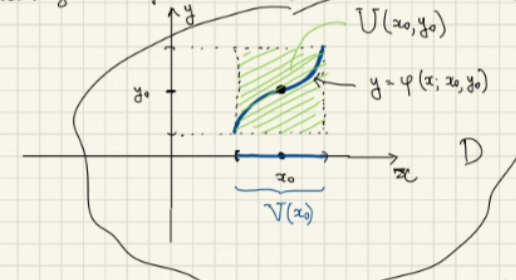 y
U(x₀,y₀)
y₀
y = φ(x; x₀,y₀)
D
x₀
x
V(x₀)